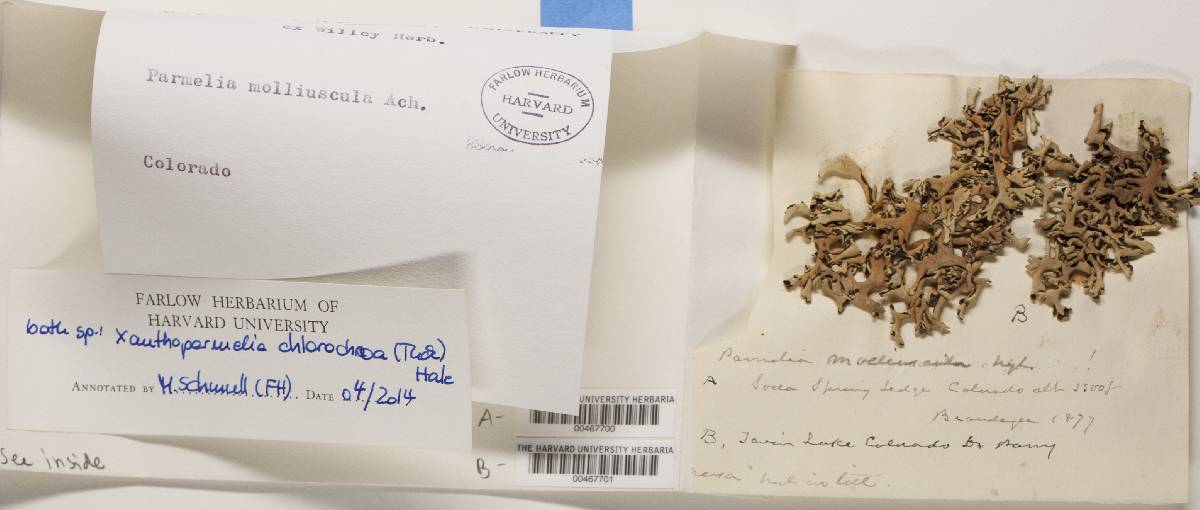 ex Willey Herb.
Parmelia molliuscula Ach.
Colorado
FARLOW HERBARIUM
HARVARD
UNIVERSITY
FARLOW HERBARIUM OF
HARVARD UNIVERSITY
both sp.! Xanthoparmelia chlorochroa (Tuck)
Hale
ANNOTATED BY (FH) DATE 04/2014
See inside
A-
UNIVERSITY HERBARIA
00467700
B-
THE HARVARD UNIVERSITY HERBARIA
00467701
B
Parmelia !
A Soda Spring Ledge Colorado alt 5500f
Brandegee 1877
B, Lake Colorado Dr Parry
in litt.